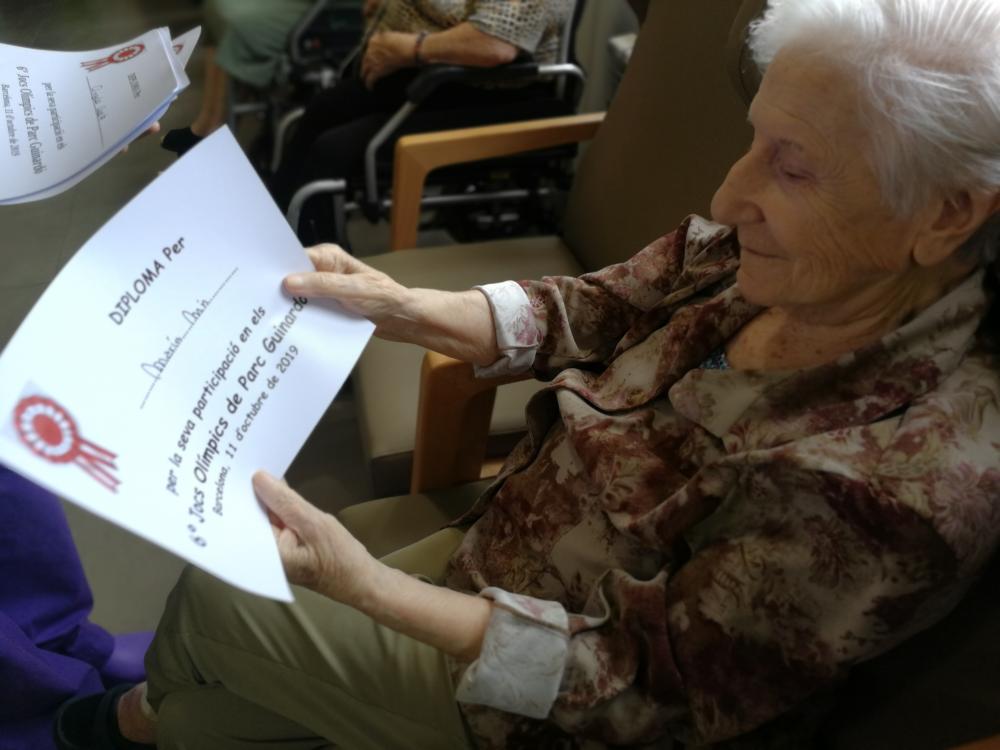 DIPLOMA Per
per la seva participació en els
6º Jocs Olímpics de Parc Guinardó
Barcelona, 11 d'octubre de 2019
DIPLOMA Per
per la seva participació en els
6º Jocs Olímpics de Parc Guinardó
Barcelona, 11 d'octubre de 2019